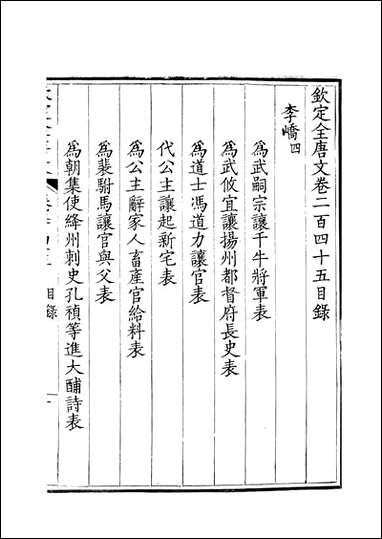 欽定全唐文卷二百四十五目錄
李嶠四
為武嗣宗讓千牛將軍表
為武攸宜讓揚州都督府長史表
為道士馮道力讓官表
代公主讓起新宅表
為公主辭家人畜產官給料表
為裴駙馬讓官與父表
為朝集使絳州刺史孔禎等進大酺詩表
目錄
一